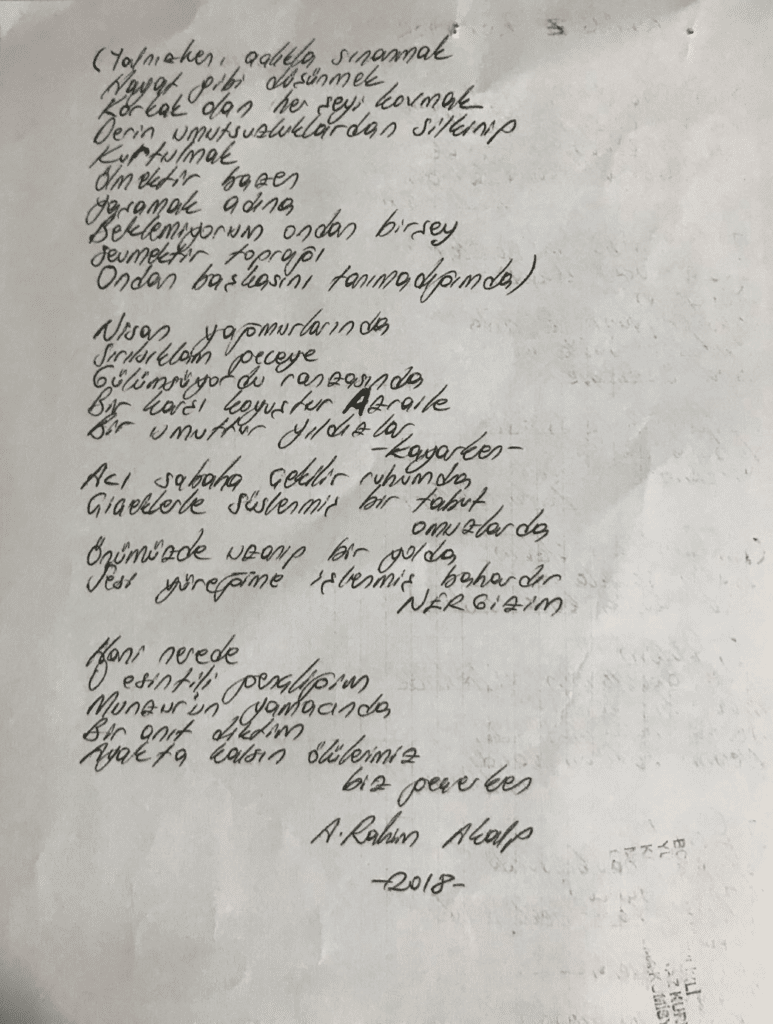 (Yalnızken, açlıkla sınanmak
Hayat gibi düşünmek
Korkak dan her şeyi kovmak
Derin umutsuzluklardan silkinip
Kurtulmak
Ölmektir bazen
Yaşamak adına
Beklemiyorum ondan birşey
Sevmektir toprağı
Ondan başkasını tanımadığımda)
Nisan yağmurlarında
Sırılsıklam geceye
Gülümsüyordu ranzasında
Bir karşı koyuştur Azraile
Bir umuttur yıldızlar
-kayarken-
Acı sabaha çekilir ruhumda
Çiçeklerle süslenmiş bir tabut
omuzlarda
Önümüzde uzanıp bir yolda
Sesi yüreğime işlenmiş bahardır
NERGİZİM
Hani nerede
O esintili gençliğim
Munzur'un yamacında
Bir anıt diktim
Ayakta kalsın ölülerimiz
biz geçerken
A. Rahim Akalp
-2018-